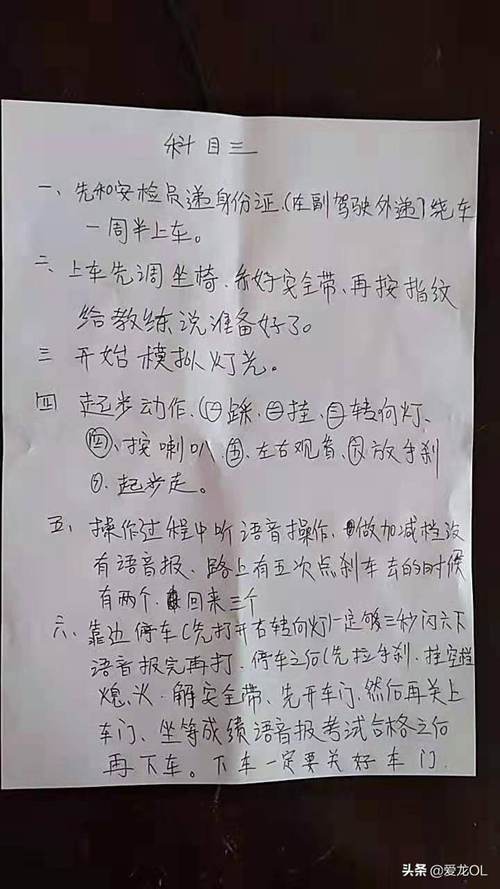 科目三
一、先和安检员递身份证.(在副驾驶外递)绕车
一周半上车。
二、上车先调坐椅、系好安全带、再按指纹
给教练说准备好了。
三 开始模拟灯光。
四 起步动作.㊀踩.㊁挂.㊂转向灯、
㊃、按喇叭.㊄、左右观看、㊅放手刹
㊆.起步走。
五、操作过程中听语音操作.做加减档没
有语音报、路上有五次点刹车去的时候
有两个.回来三个
六、靠边停车(先打开右转向灯)一定够三秒闪六下
语音报完再打.停车之后(先拉手刹.挂空档
熄、火.解安全带、先开车门.然后再关上
车门、坐等成绩语音报考试合格之后
再下车。下车一定要关好车门.
头条@爱龙OL